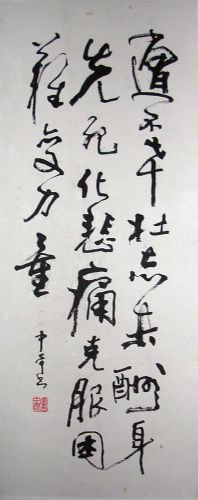 遭不幸壮志未酬身
先死化悲痛克服困
難变力量